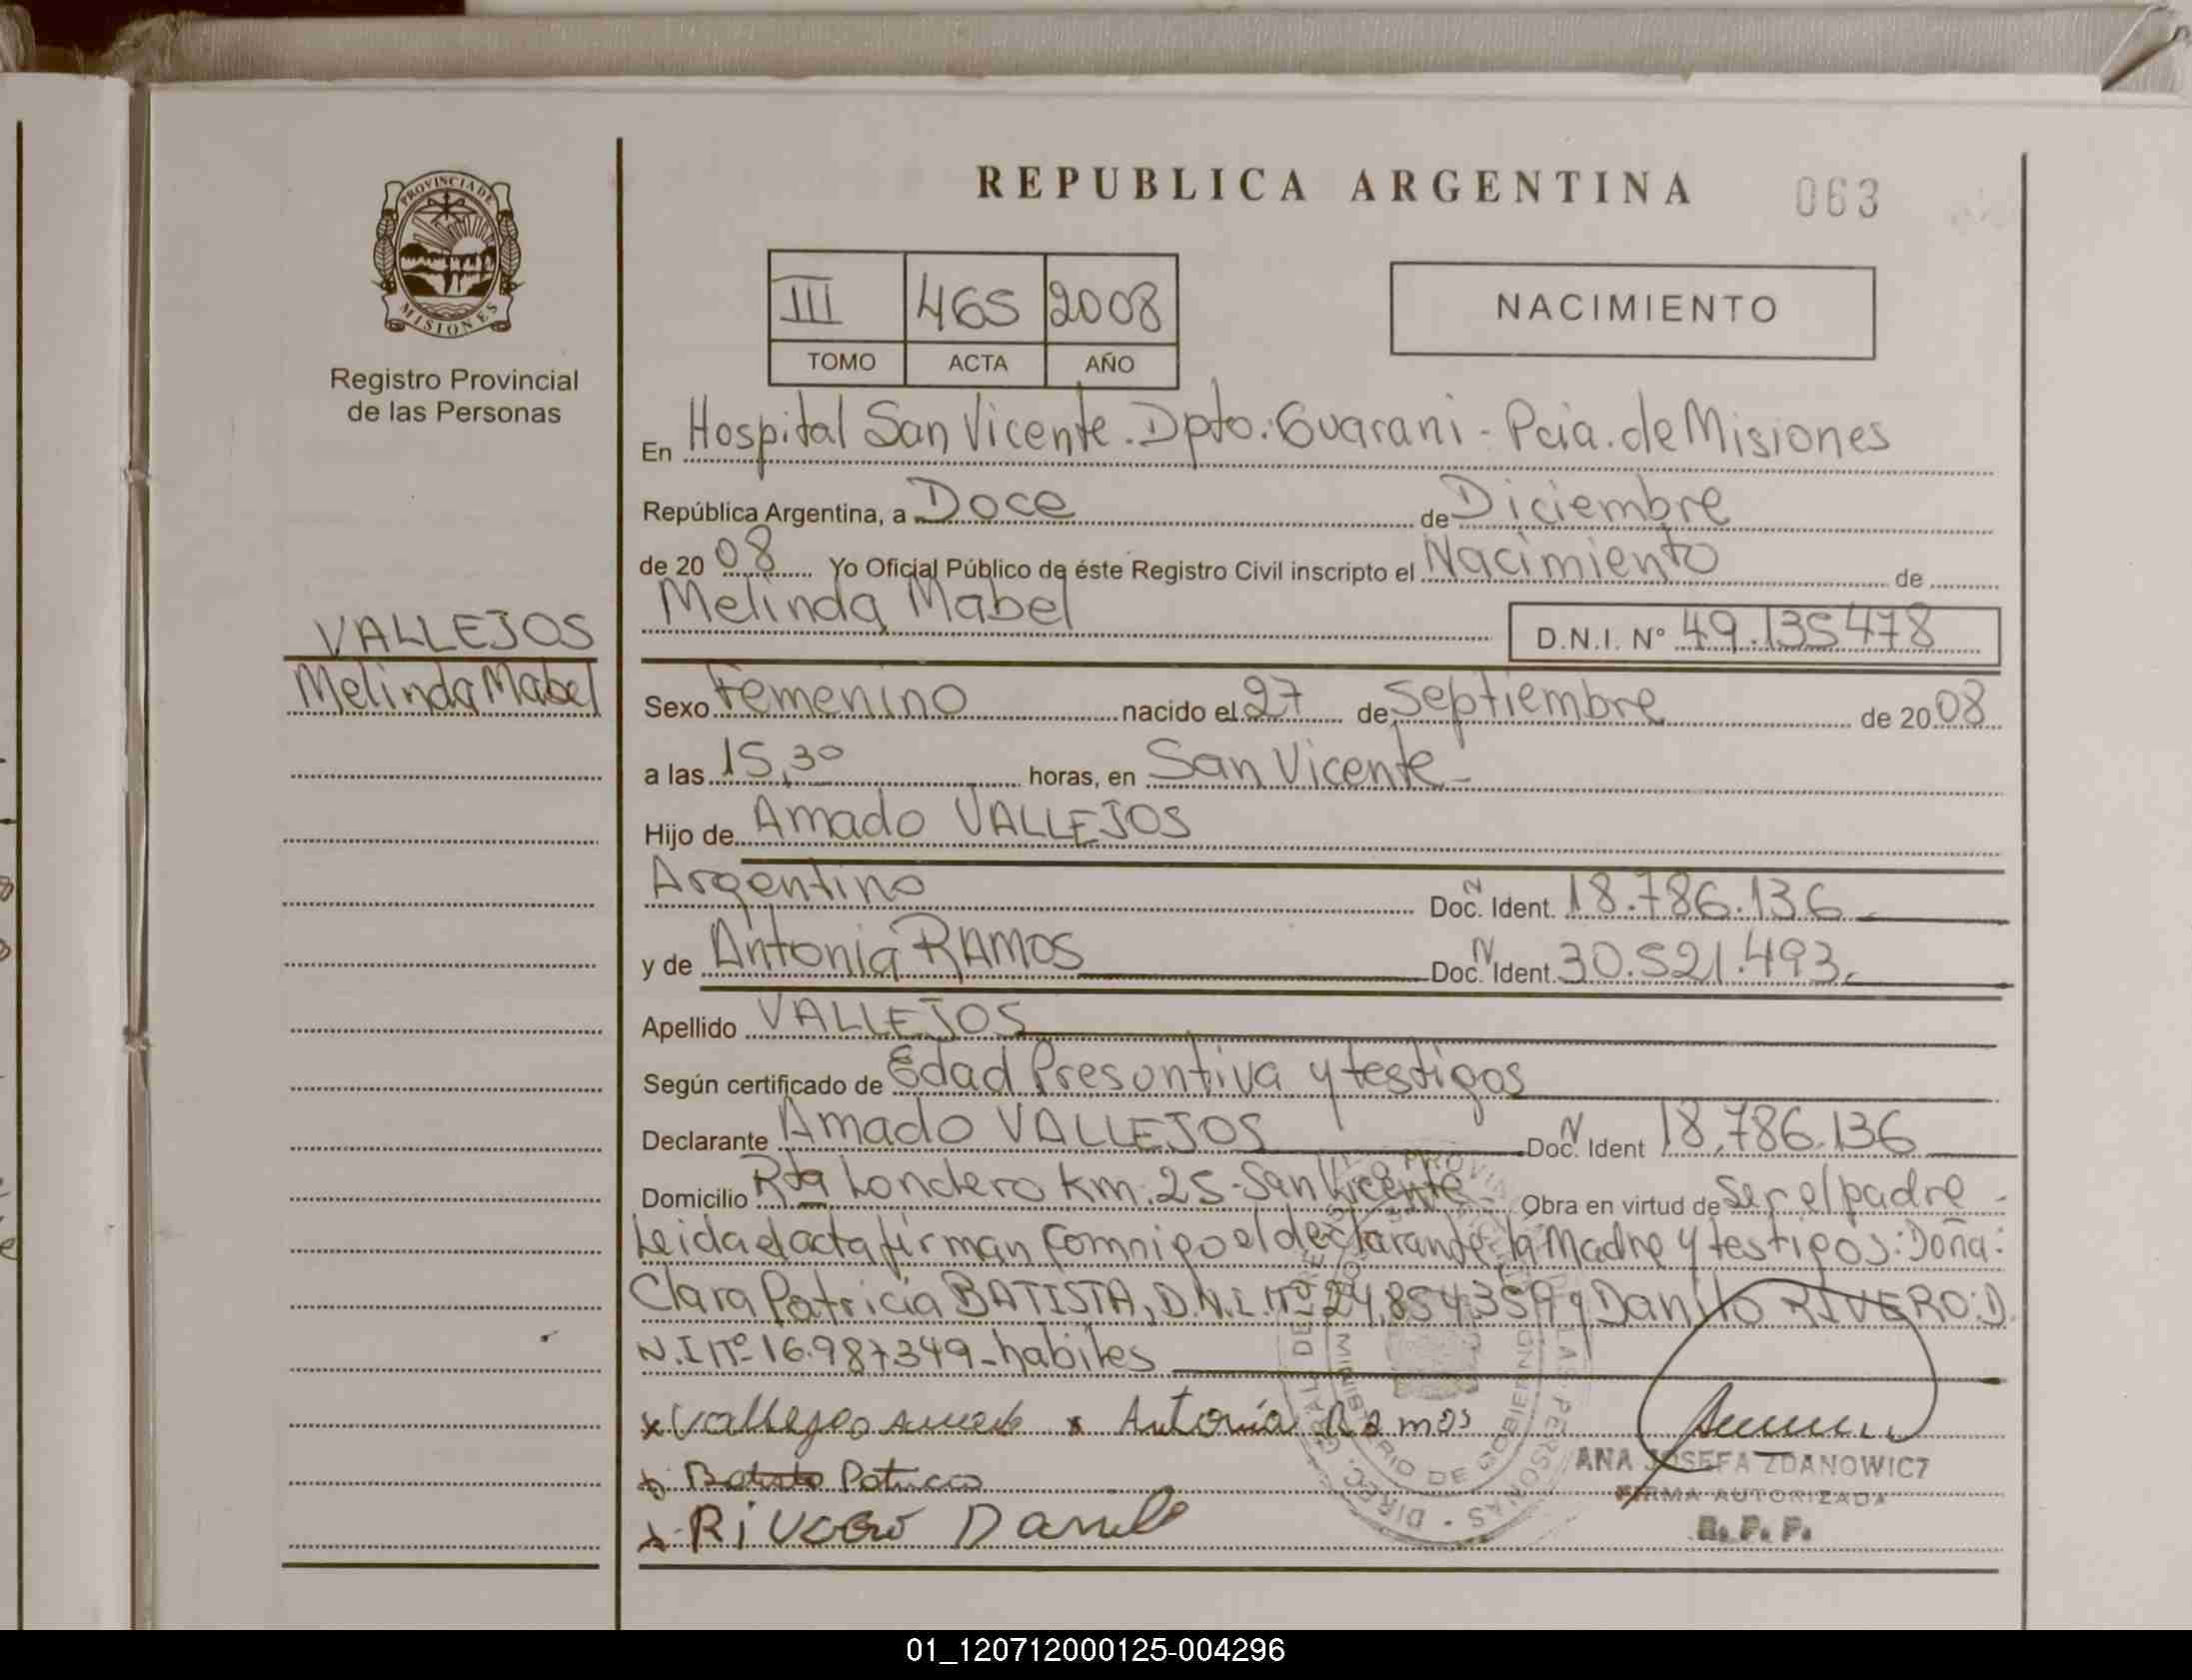 PROVINCIA DE
MISIONES
Registro Provincial
de las Personas
VALLEJOS
Melinda Mabel
REPUBLICA ARGENTINA 063
III 465 2008
TOMO ACTA AÑO
NACIMIENTO
En Hospital San Vicente. Dpto. Guarani - Pcia. de Misiones
República Argentina, a Doce de Diciembre
de 2008 Yo Oficial Público de éste Registro Civil inscripto el Nacimiento de
Melinda Mabel D.N.I. Nº 49.135478
Sexo Femenino nacido el 27 de Septiembre de 2008
a las 15,30 horas, en San Vicente-
Hijo de Amado VALLEJOS
Argentino Doc. N Ident. 18.786.136
y de Antonia RAMOS Doc. N Ident. 30.521.493.
Apellido VALLEJOS
Según certificado de Edad Presontiva y testigos
Declarante Amado VALLEJOS Doc. N Ident 18.786.136
Domicilio Rta Londero Km. 25-San Vicente- Obra en virtud de Ser el padre-
Leida el acta firman conmigo el declarante, la Madre y testigos: Doña:
Clara Patricia BATISTA, D.N.I. Nº 24.854.359 y Danilo RIVERO: D.
N.I Nº 16.987.349-habiles
x Vallejos Amado x Antonia Ramos
Batista Patricia
x RiVERO Danilo
ANA JOSEFA ZDANOWICZ
FIRMA AUTORIZADA
R. P. P.
DIREC. GRAL. DE PERSONAS
MINISTERIO DE GOBIERNO
01_120712000125-004296